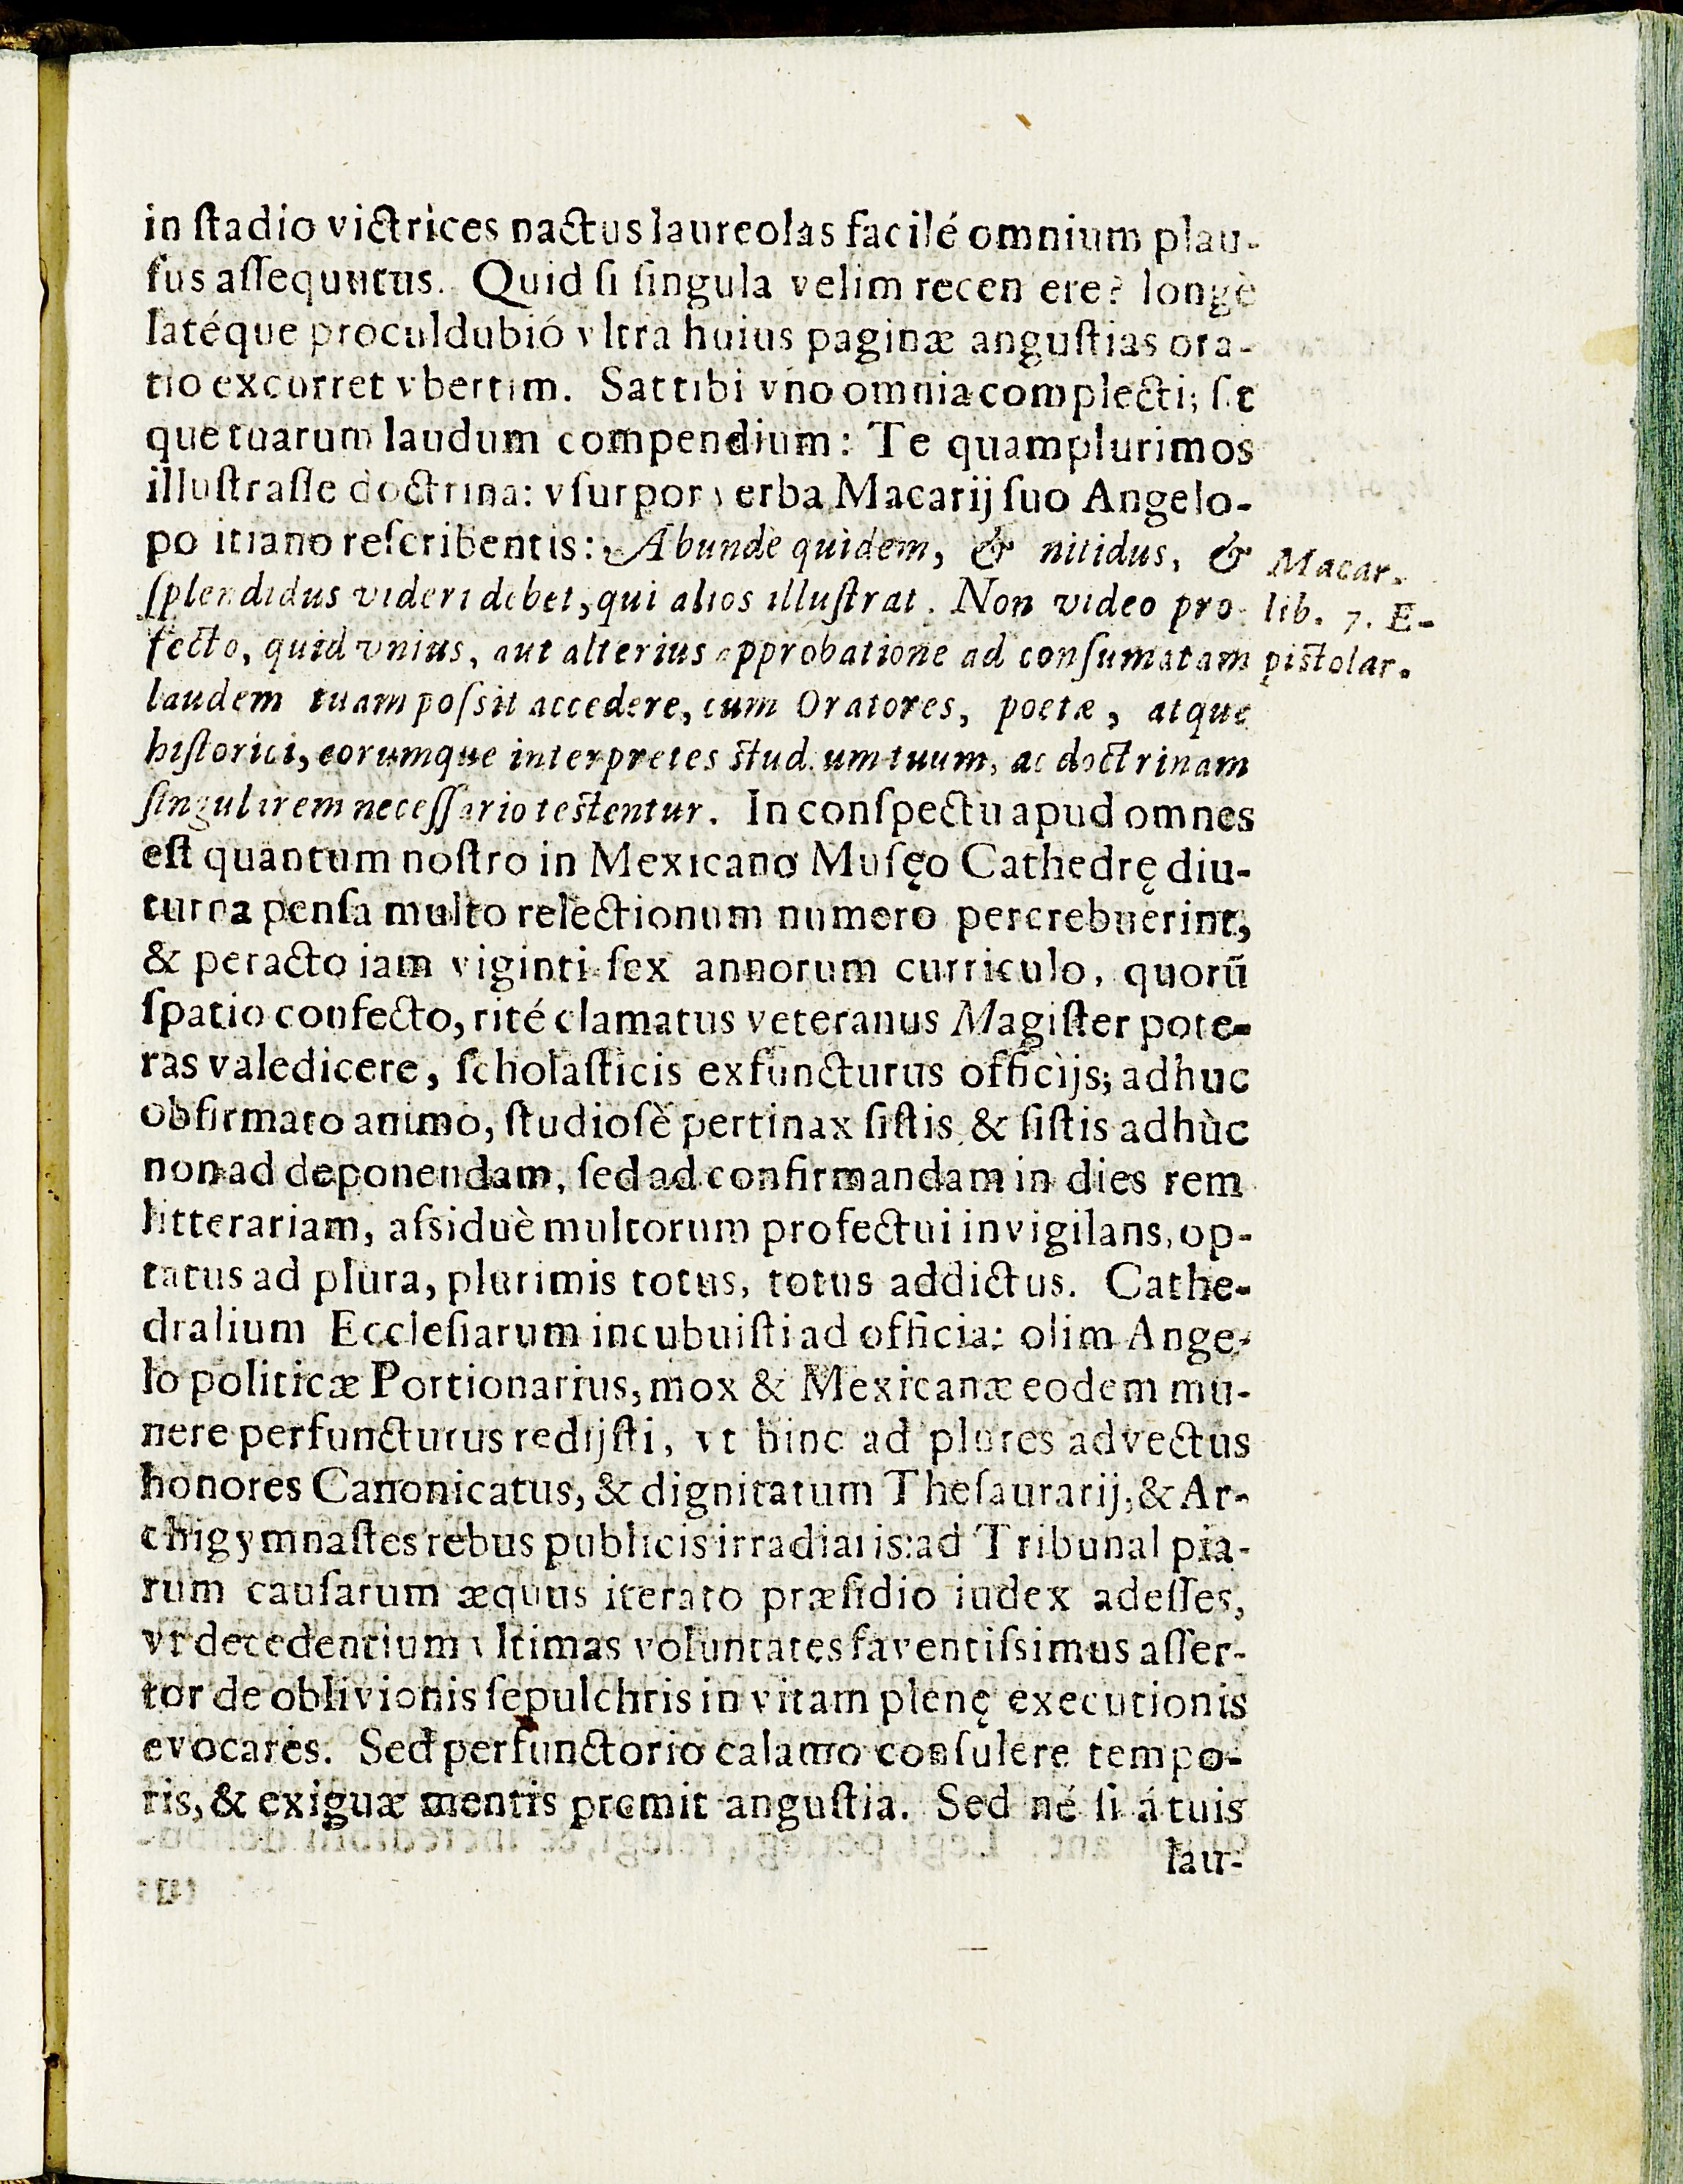 in ſtadio victrìces nactus laureolas facilé omnium plau-
ſus aſſequutus. Quid ſi ſingula velim recen ere? longè
latéque proculdubió vltra huius paginæ anguſtias ora-
tio excurret vbertim. Sat tibi vno omnia complecti; ſit
que tuarum laudum compendium: Te quamplurimos
illuſtraſſe doctrina: vſurpor verba Macarij ſuo Angelo-
po itiano reſcribentis: Abundè quidem, & nitidus, &
ſplendidus videri debet, qui alios illuſtrat. Non video pro-
fecto, quid vnius, aut alterius approbatione ad conſumatam
laudem tuam poſsit accedere, cum Oratores, poetæ, atque
hiſtorici, eorumque interpretes ſtudium tuum, ac doctrinam
ſingularem neceſſario teſtentur. In conſpectu apud omnes
eſt quantum noſtro in Mexicano Muſęo Cathedrę diu-
turna penſa multo relectionum numero percrebuerint,
& peracto iam viginti ſex annorum curriculo, quorũ
ſpatio confecto, rité clamatus veteranus Magiſter pote-
ras valedicere, ſcholaſticis exfuncturus officijs; adhuc
obfirmato animo, ſtudioſè pertinax ſiſtis, & ſiſtis adhùc
non ad deponendam, ſed ad confirmandam in dies rem
litterariam, aſsiduè multorum profectui invigilans, op-
tatus ad plura, plurimis totus, totus addictus. Cathe-
dralium Eccleſiarum incubuiſti ad officia: olim Ange-
lo politicæ Portionarius, mox & Mexicanæ eodem mu-
nere perfuncturus redijſti, vt hinc ad plures advectus
honores Canonicatus, & dignitatum Theſaurarij, & Ar-
chigymnaſtes rebus publicis irradiaris: ad Tribunal pia-
rum cauſarum æquus iterato præſidio iudex adeſſes,
vt decedentium vltimas voluntates faventiſsimus aſſer-
tor de oblivionis ſepulchris in vitam plenę executionis
evocares. Sed perfunctorio calamo conſulere tempo-
ris, & exiguæ mentis premit anguſtia. Sed né ſi á tuis
lau-
Macar.
lib. 7. E-
piſtolar.